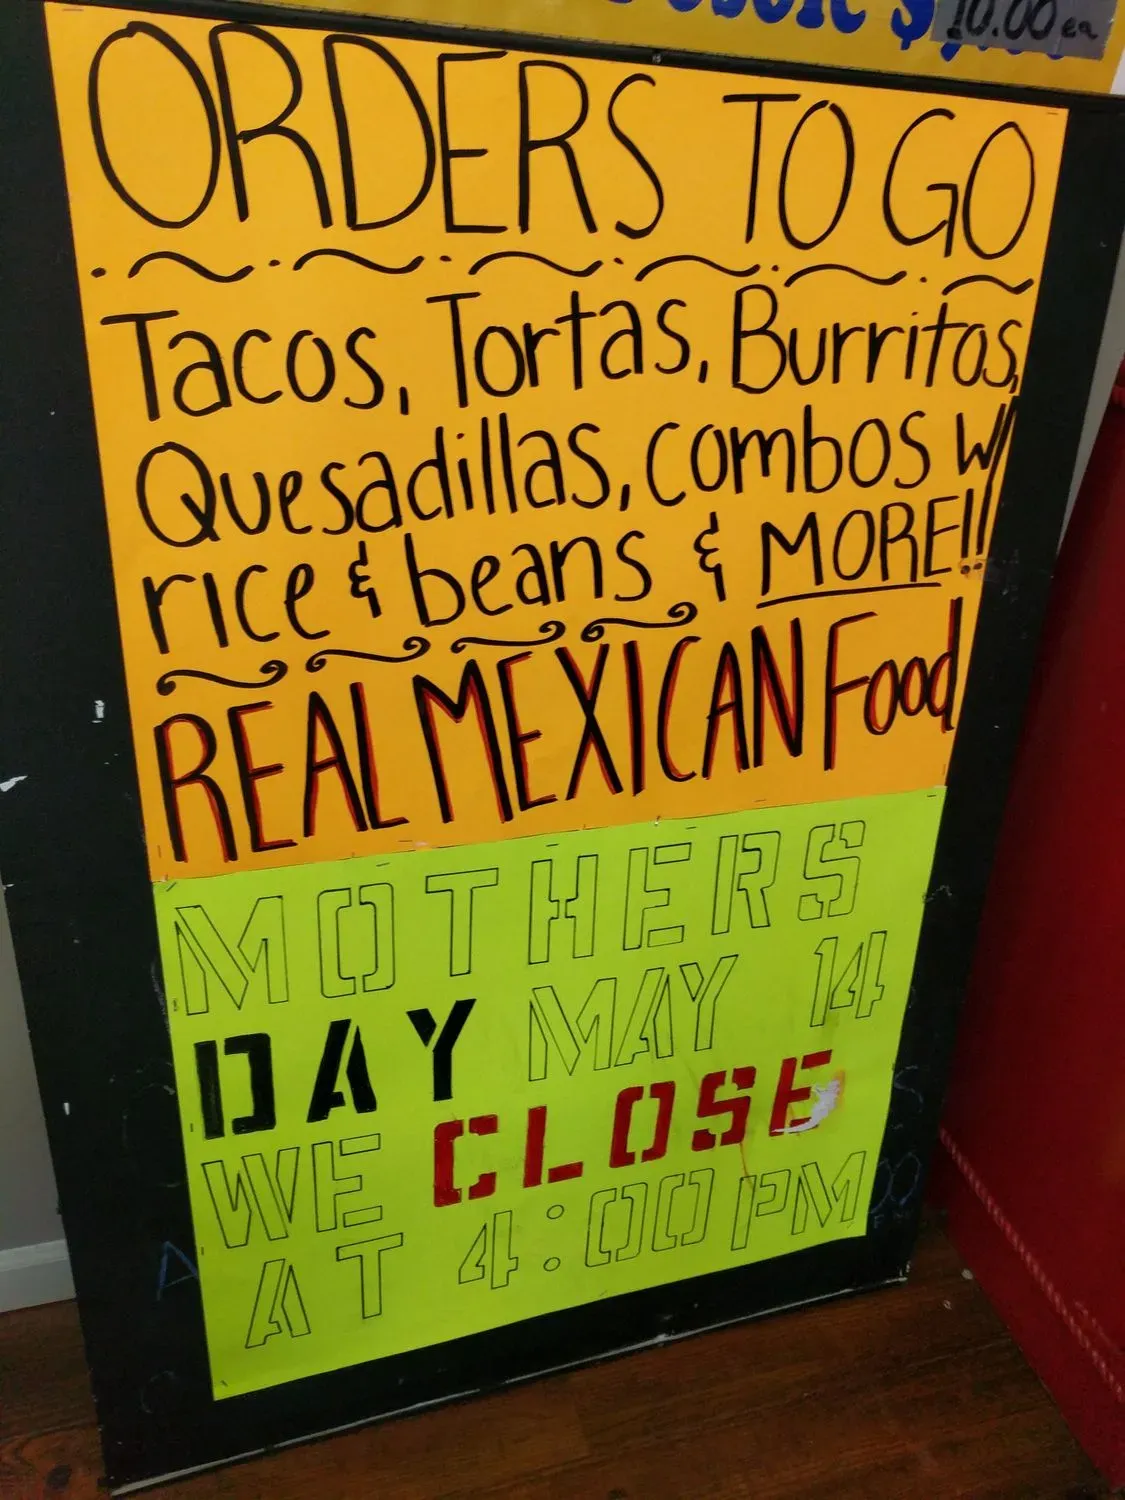 $10.00 ea
ORDERS TO GO
Tacos, Tortas, Burritos,
Quesadillas, combos w/
rice & beans & MORE!!
REAL MEXICAN Food
MOTHERS
DAY MAY 14
WE CLOSE
AT 4:00 PM